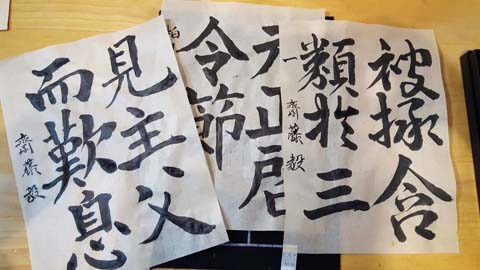 被拯含
類於三
齋藤毅
元正啓
令節
見主父
而歎息
齋藤毅